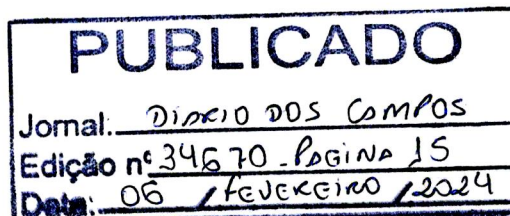 PUBLICADO
Jornal: DIARIO DOS CAMPOS
Edição nº 34670 - PAGINA 15
Data: 06 / FEVEREIRO / 2024